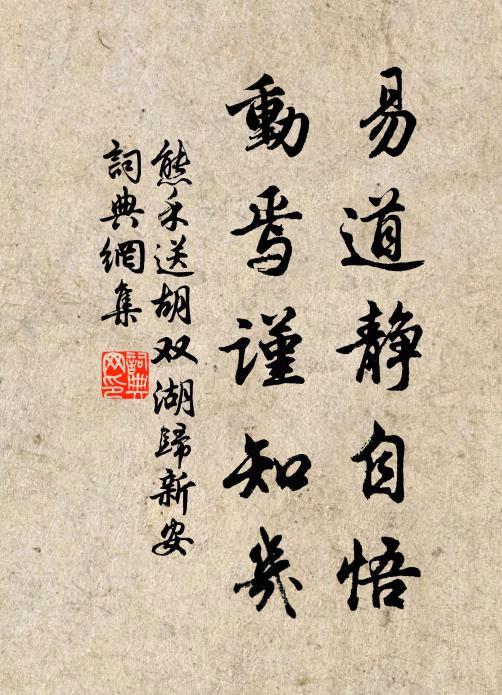 易道静自悟
動焉謹知幾
熊禾送胡双湖歸新安
詞典網集
詞典网印